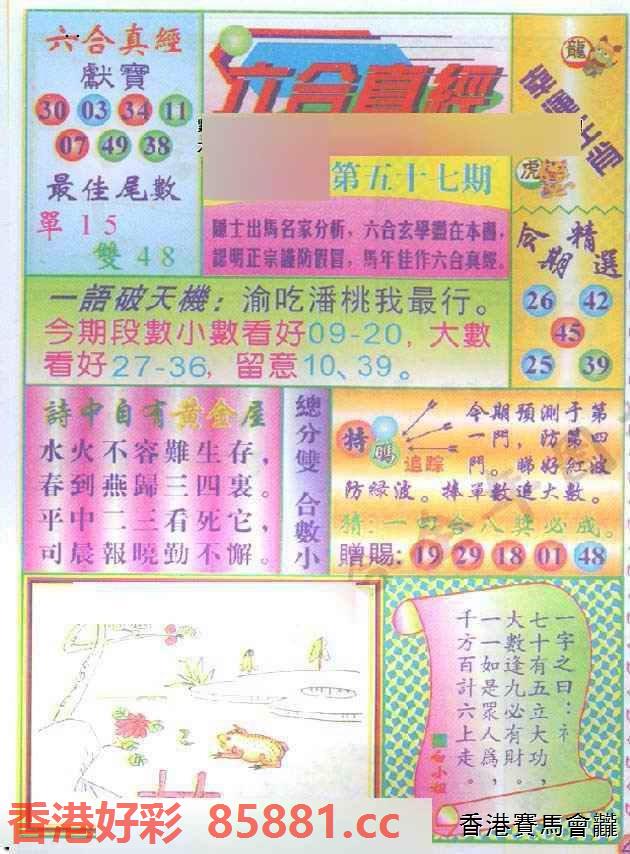 六合真經
獻寶
30 03 34 11
07 49 38
最佳尾數
單 1 5
雙 4 8
六合真經
第五十七期
隱士出馬名家分析，六合玄學盡在本圖，
認明正宗謹防假冒，馬年佳作六合真經。
龍
虎
今期精選
26 42
45
25 39
一語破天機：渝吃潘桃我最行。
今期段數小數看好09-20，大數
看好27-36，留意10、39。
詩中自有黃金屋
水火不容難生存，
春到燕歸三四裏。
平中二三看死它，
司晨報曉勤不懈。
總分雙 合數小
特碼
追踪
今期預測于第
一門，防第四
門。睇好紅波
防綠波。捧單數追大數。
猜：一四合八獎必成。
贈賜：19 29 18 01 48
一字之曰：礻
七十有五立大功，
大數逢九必有財。
一一如是眾人為，
千方百計六上走。
白小姐
香港好彩 85881.cc
香港賽馬會